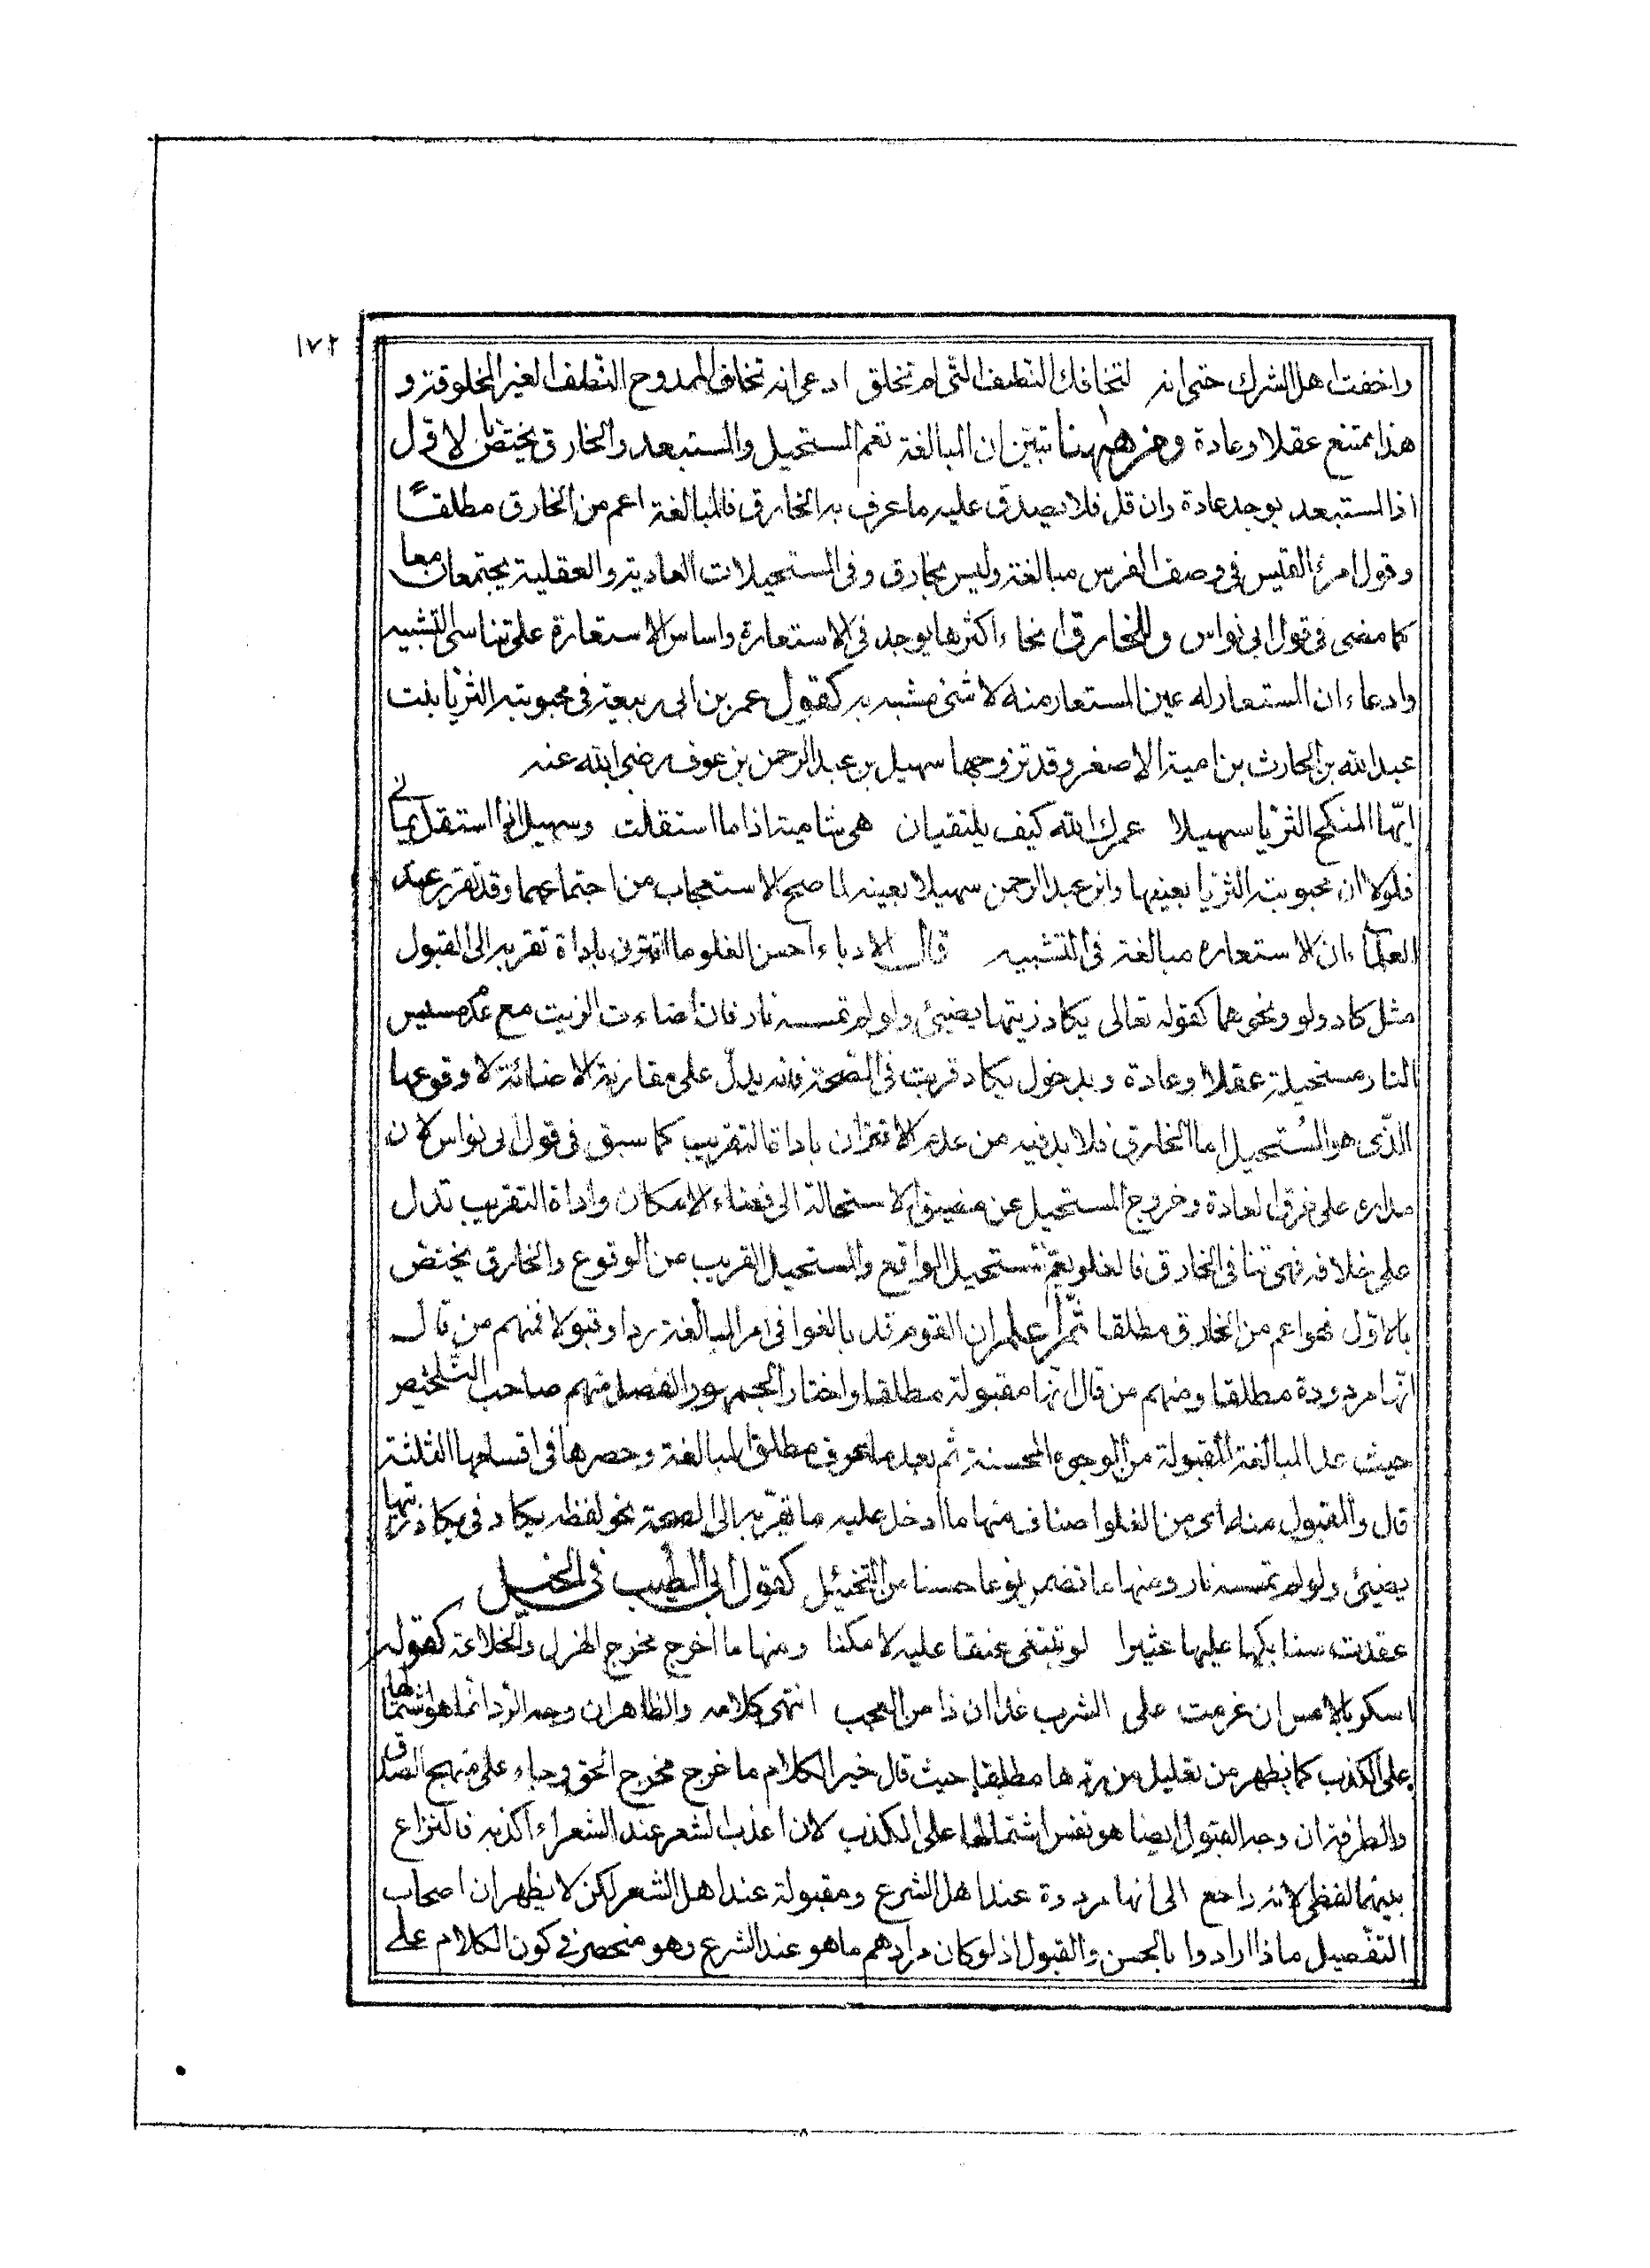 ١٧٢
واخفت اهل الشرك حتى انه لتخافك النطف التى لم تخلق ادعى انه تخاف الممدوح النطف الغير المخلوقة و
هذا ممتنع عقلا وعادة ومن ههنا تبيّن ان المبالغة تعم المستحيل والمستبعد والخارق يختص بالاول
اذ المستبعد يوجد عادة وان قل فلا يصدق عليه ما عرف به الخارق فالمبالغة اعم من الخارق مطلقًا
وقول امرئ القيس فى وصف الفرس مبالغة وليس بخارق وفى المستحيلات العادية والعقلية يجتمعان معا
كما مضى فى قول ابى نواس وللخارق انحاء اكثرها يوجد فى الاستعارة واساس الاستعارة على تناسى التشبيه
وادعاء ان المستعار له عين المستعار منه لا شئ مشبه به كقول عمر بن ابى ربيعة فى محبوبته الثريا بنت
عبد الله بن الحارث بن امية الاصغر وقد تزوجها سهيل بن عبد الرحمن بن عوف رضى الله عنه
ايّها المنكح الثريا سهيلا عمرك الله كيف يلتقيان هى شامية اذا ما استقلت وسهيل اذا استقل يمانى
فلولا ان محبوبته الثريا بعينها وابن عبد الرحمن سهيلا بعينه لما صح الاستعجاب من اجتماعهما وقد تقرر عند
العلماء ان الاستعاره مبالغة فى التشبيه قال الادباء احسن الغلو ما اقترن باداة تقربه الى القبول
مثل كاد ولو ونحوهما كقوله تعالى يكاد زيتها يضيئ ولو لم تمسسه نار فان اضاءت الزيت مع عدم مسيس
النار مستحيلة عقلا وعادة وبدخول يكاد قربت فى الصّحة فانه يدلّ على مقاربة الاضائة لا وقوعها
الذّى هو المُستحيل اما الخارق فلا بد فيه من عدم الاقتران باداة التقريب كما سبق فى قول ابى نواس لان
مداره على خرق العادة وخروج المستحيل عن مضيق الاستحالة الى فضاء الامكان واداة التقريب تدل
على خلافه فهى تنافى الخارق فالغلو يعم المستحيل الواقع والمستحيل القريب من الوقوع والخارق يختص
بالاوّل فهو اعم من الخارق مطلقا ثمّ اعلم ان القوم قد بالغوا فى امر المبالغة ردا وقبولا فمنهم من قال
انّها مردودة مطلقا ومنهم من قال انّها مقبولة مطلقا واختار الجمهور الفصل منهم صاحب التّلخيص
حيث عد المبالغة المقبولة من الوجوه المحسنة ثم بعد ما عرف مطلق المبالغة وحصرها فى اقسامها الثلثة
قال والمقبول منه اى من الغلو اصناف منها ما ادخل عليه ما تقرّبه الى الصحة نحو لفظه يكاد فى يكاد زيتها
يضيئ ولو لم تمسسه نار ومنها ما تضمن نوعا حسنا من التخييل كقول ابى الطّيب فى الخيل
عقدت سنابكها عليها عثيرا لو تبتغى عنقا عليه لامكنا ومنها ما اخرج مخرج الهزل والخلاعة كقوله
اسكر بالامس ان عزمت على الشرب غدا ان ذا من العجب انتهى كلامه والظاهر ان وجه الرّد انما هو اشتمالها
على الكذب كما يظهر من تعليل من ردها مطلقا حيث قال خير الكلام ما خرج مخرج الحق وجاء على منهج الصدق
والطرفة ان وجه القبول ايضا هو نفس اشتمالها على الكذب لان اعذب الشعر عند الشعراء اكذبه فالنزاع
بينهما لفظى لانه راجع الى انها مردودة عند اهل الشرع ومقبولة عند اهل الشعر لكن لا يظهر ان اصحاب
التفصيل ماذا ارادوا بالحسن والقبول اذ لو كان مرادهم ما هو عند الشرع وهو منحصر فى كون الكلام على